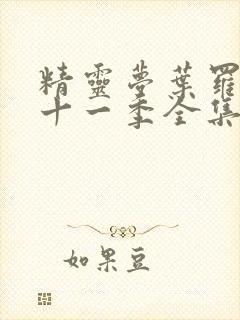 精靈夢葉羅
十一季全集
如果豆